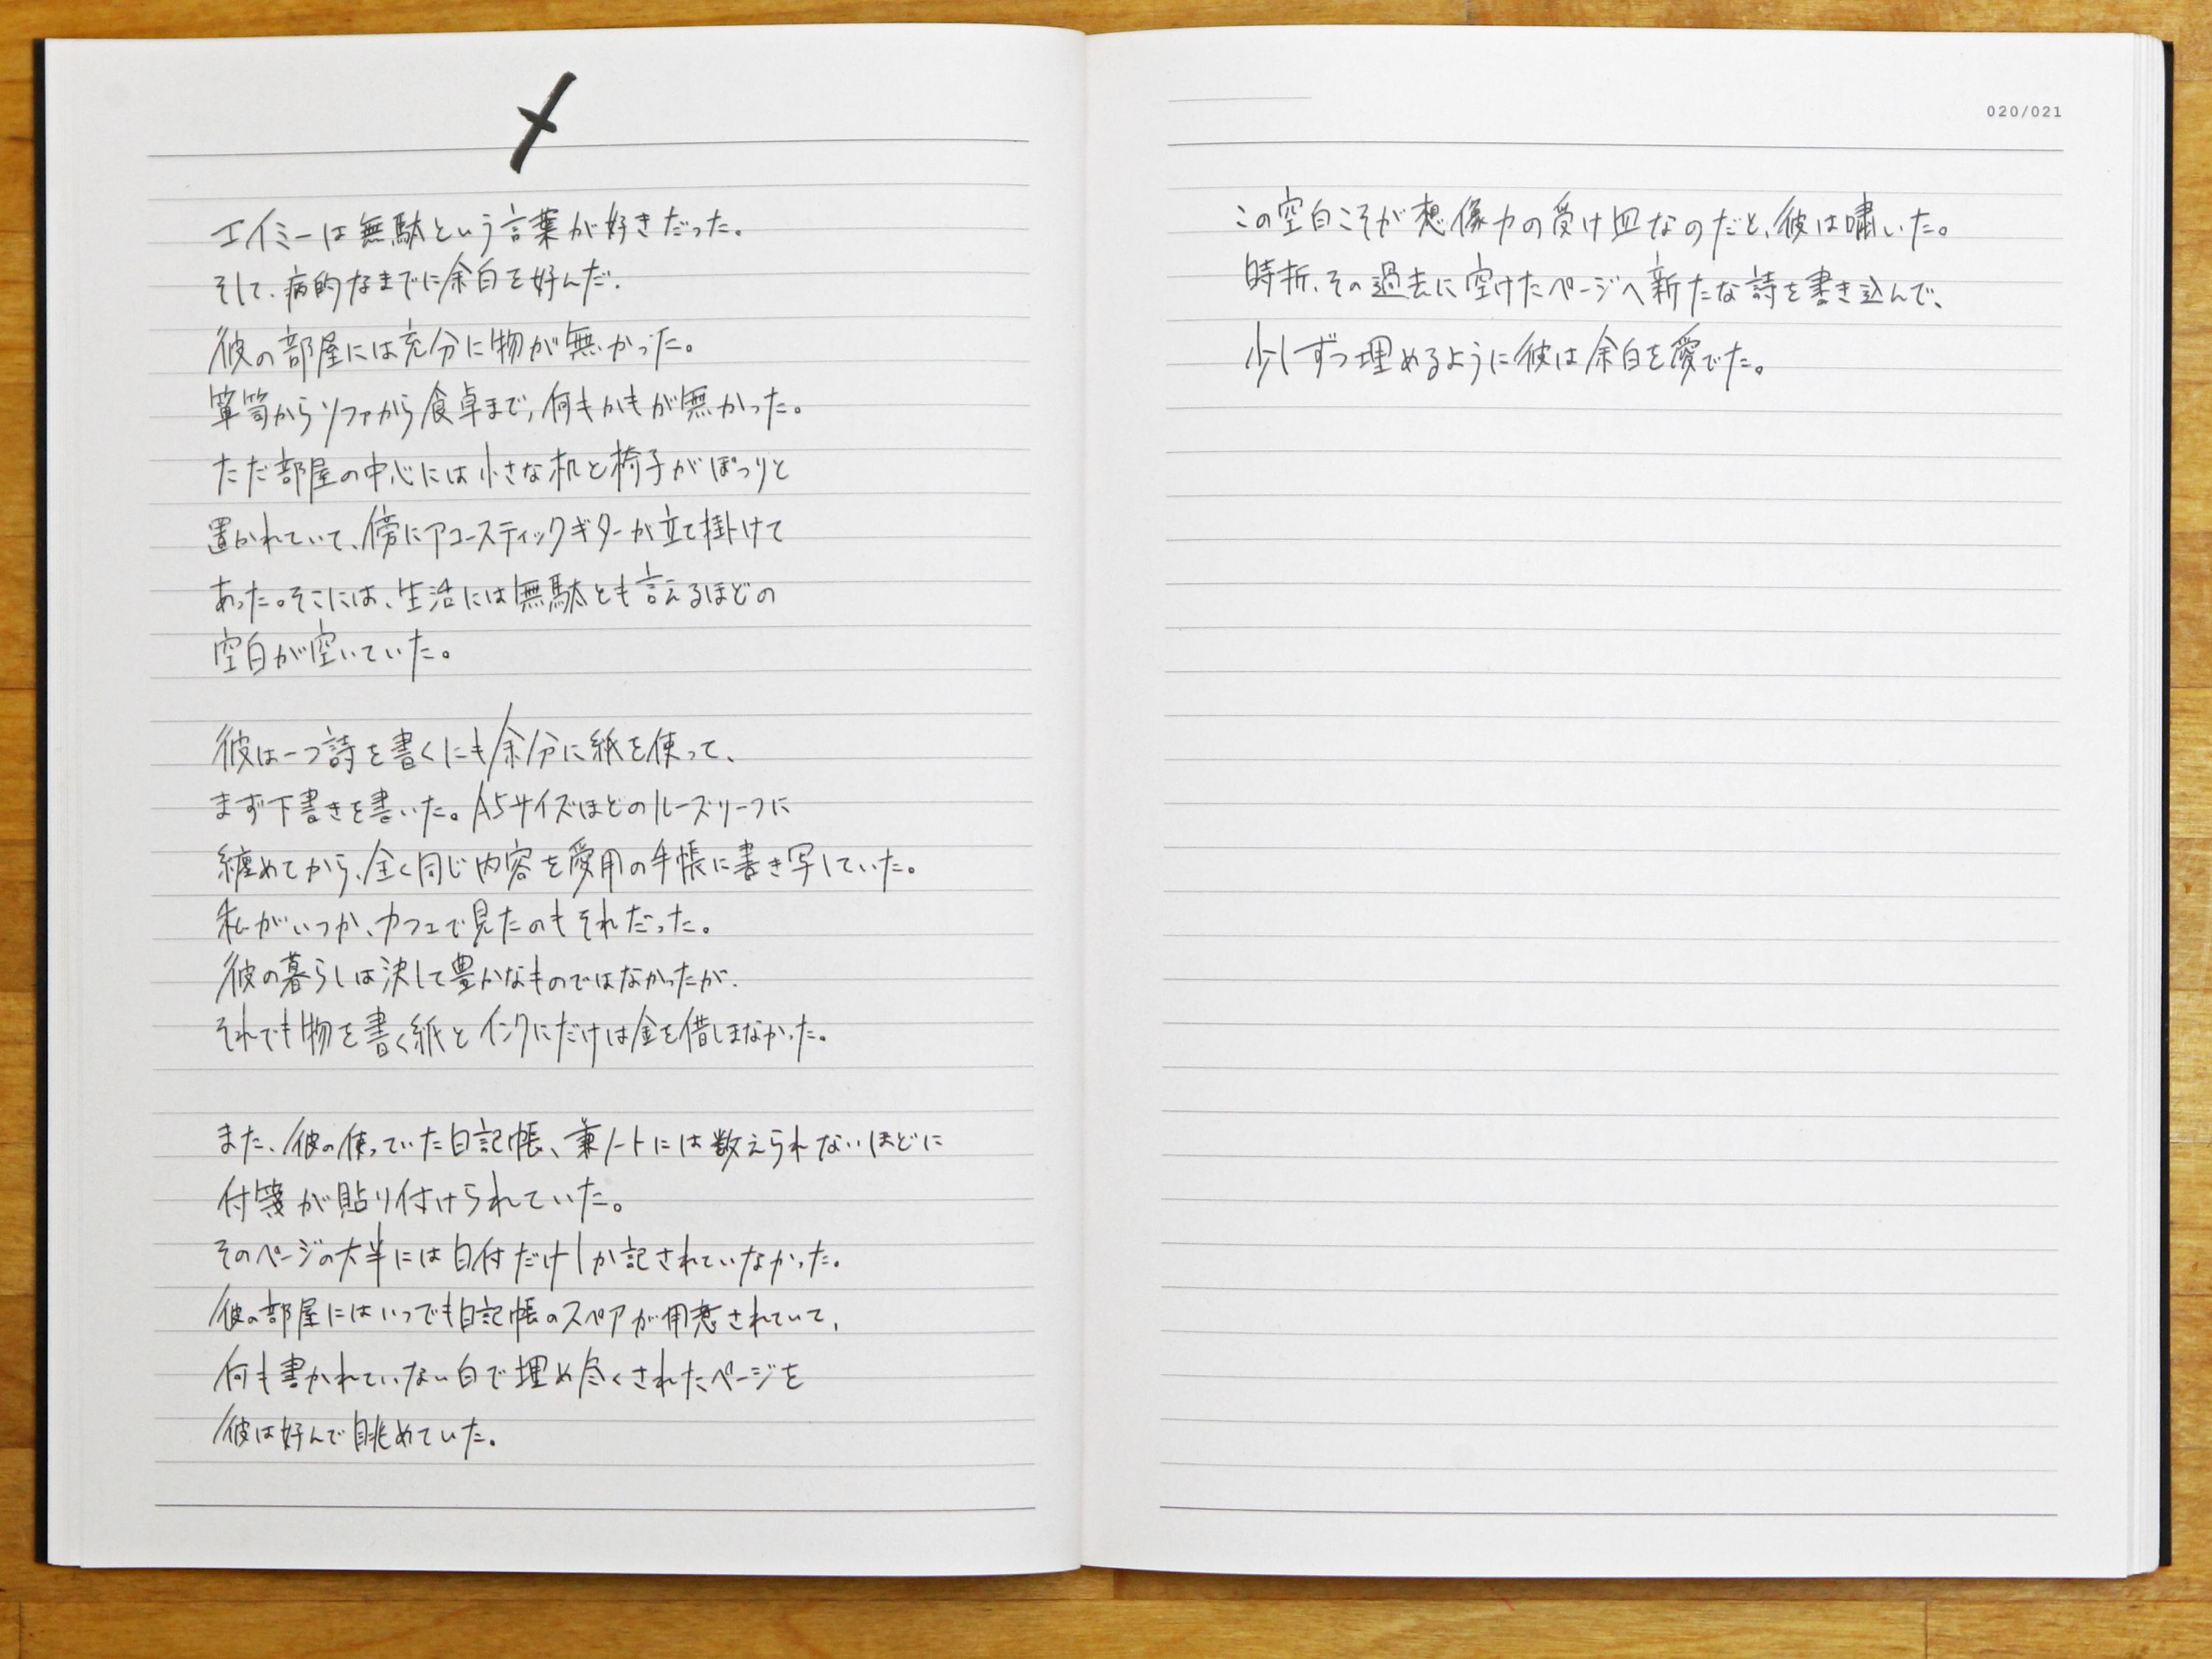 エイミーは無駄という言葉が好きだった。
そして、病的なまでに余白を好んだ。
彼の部屋には充分に物が無かった。
箪笥からソファから食卓まで、何もかもが無かった。
ただ部屋の中心には小さな机と椅子がぽつりと
置かれていて、傍にアコースティックギターが立て掛けて
あった。そこには、生活には無駄とも言えるほどの
空白が空いていた。
彼は一つ詩を書くにも余分に紙を使って、
まず下書きを書いた。A5サイズほどのルーズリーフに
纏めてから、全く同じ内容を愛用の手帳に書き写していた。
私がいつか、カフェで見たのもそれだった。
彼の暮らしは決して豊かなものではなかったが、
それでも物を書く紙とインクにだけは金を惜しまなかった。
また、彼の使っていた日記帳、兼ノートには数えられないほどに
付箋が貼り付けられていた。
そのページの大半には日付だけしか記されていなかった。
彼の部屋にはいつでも日記帳のスペアが用意されていて、
何も書かれていない白で埋め尽くされたページを
彼は好んで眺めていた。
020/021
この空白こそが想像力の受け皿なのだと、彼は嘯いた。
時折、その過去に空けたページへ新たな詩を書き込んで、
少しずつ埋めるように彼は余白を愛でた。